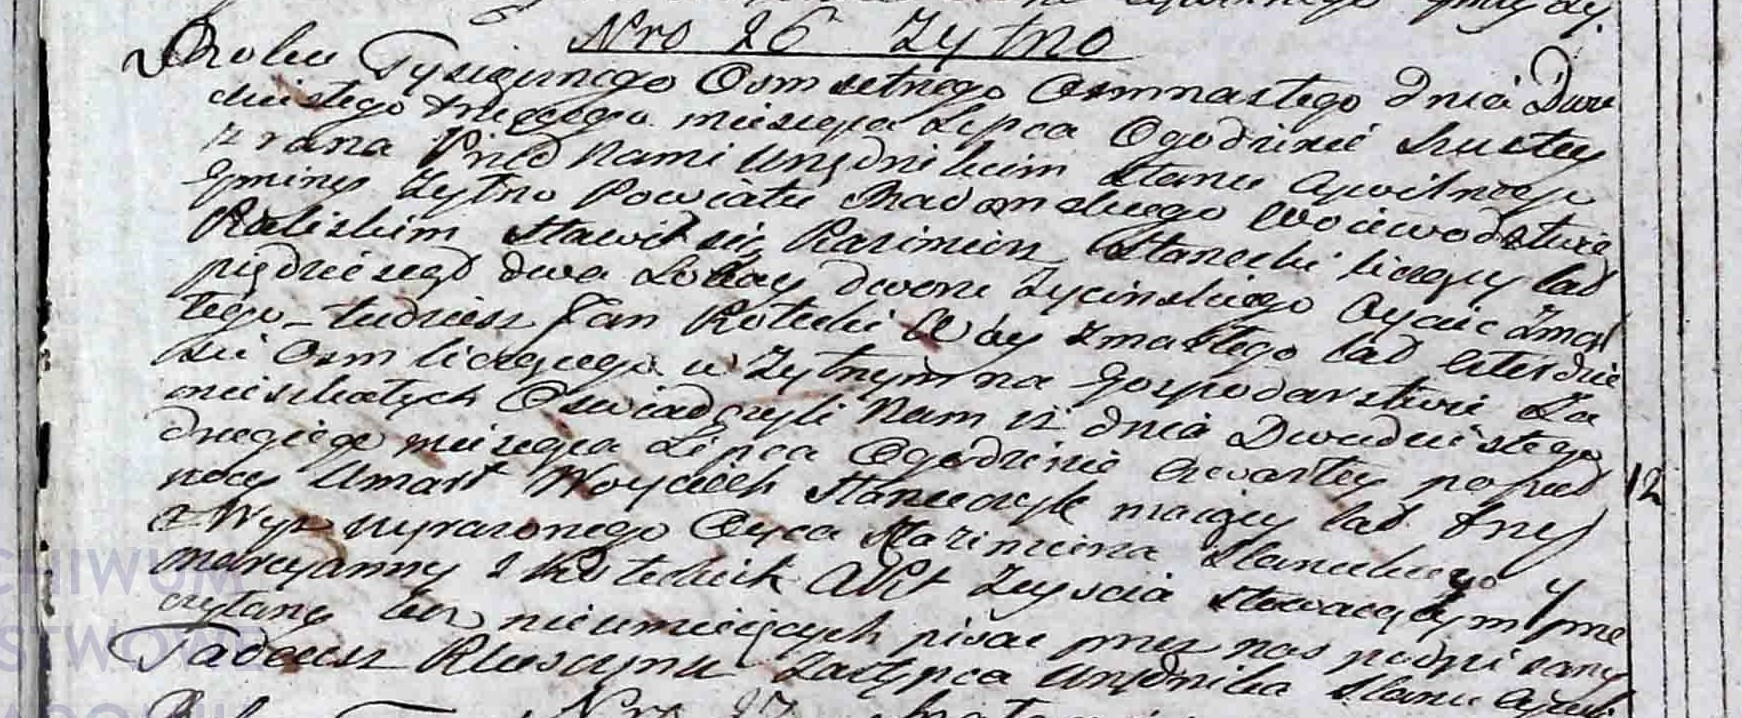 Nro 26 Zytno
Roku Tysiącznego Osmsetnego Osmnastego dnia Dwu
dziestego trzeciego miesiąca Lipca Ogodzinie szustey
z rana Przed Nami Urzędnikiem Stanu Cywilnego
Gminy Zytno Powiatu Radomskiego Woiewodztwie
Kaliskim Stawił się Kazimierz Stanecki liczący lad
pięćdziesąd dwa Lokay dworu Zycinskiego Oyciec Zmar
tego tudziesz Jan Kotecki Way zmarłego lad czterdzie
sci Osm liczącego w Zytnym na Gospodarstwie Za
mieszkałych Oswiadczyli Nam iż dnia Dwudziestego
drugiego miesiąca Lipca Ogodzinie Czwartey popuł
nocy Umarł Woyciech Staneczyk maiący lad trzy
z Wyz wyrazonego Oyca Kazimierza Staneckiego y
Maryanny z Koteckich Akt Zeyscia Stawaiącym prze
czytany lecz nieumieiących pisac przez nas podpisany
Tadeusz Zastępca Urzędnika Stanu Cywil
12
Nro 27
CHIWUM
STWOWE